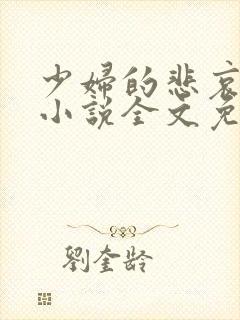 少婦的悲哀
小說全文免
劉奎齡